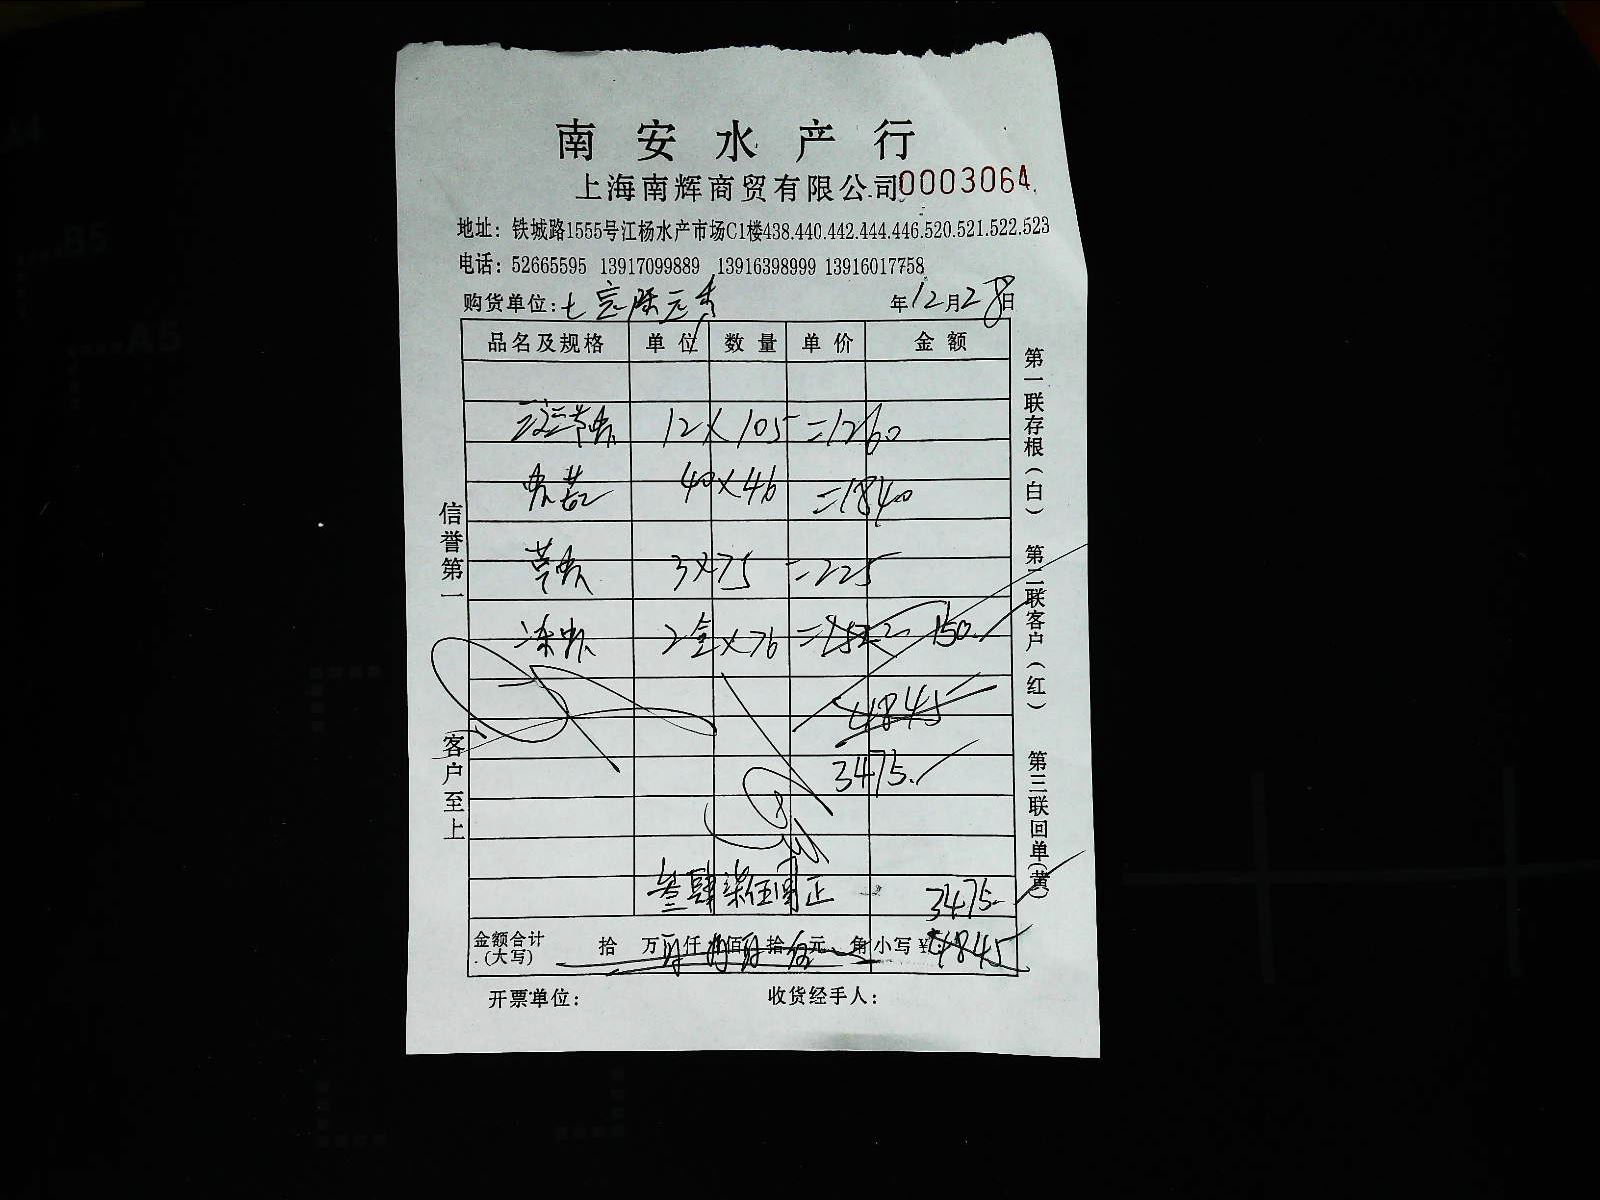 南安水产行
上海南辉商贸有限公司 0003064
地址：铁城路1555号江杨水产市场C1楼438.440.442.444.446.520.521.522.523
电话：52665595 13917099889 13916398999 13916017758
购货单位：七宝 年12月28日
品名及规格 单位 数量 单价 金额
12×105=1260
40×46=1840
3×75=225
冻虾 2盒×76=152 150.
4845
3475.
叁肆柒伍 正 3475-
金额合计(大写) 拾 万 仟 佰 拾 元 角 小写¥：4845
开票单位： 收货经手人：
信誉第一
客户至上
第一联存根(白) 第二联客户(红) 第三联回单(黄)